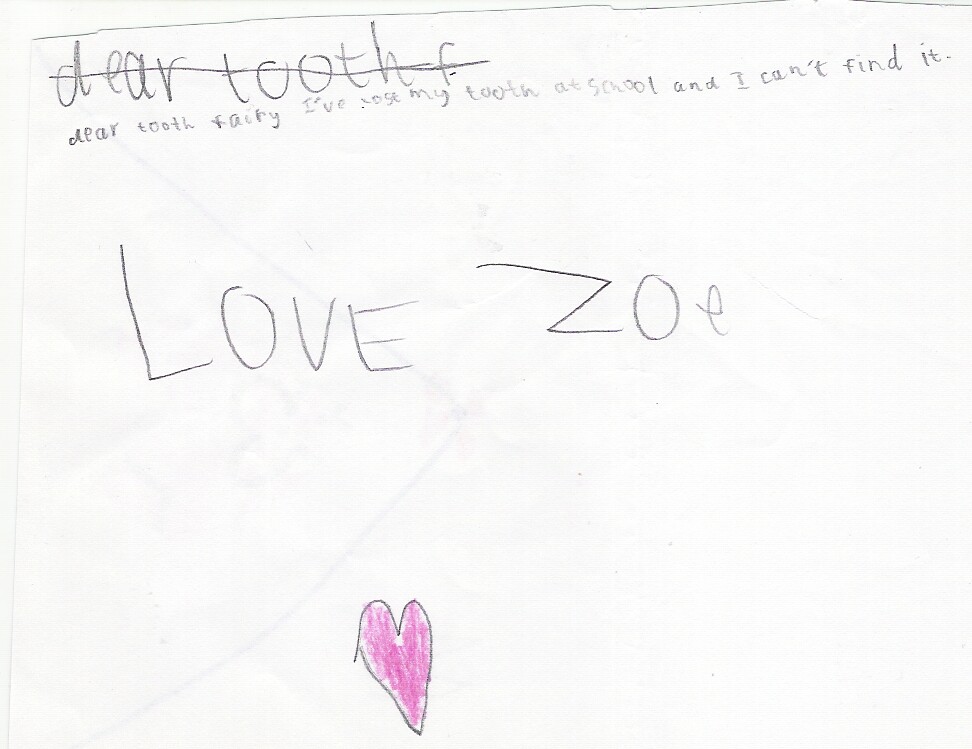 dear tooth f
dear tooth fairy I've lost my tooth at school and I can't find it.
LOVE ZOe